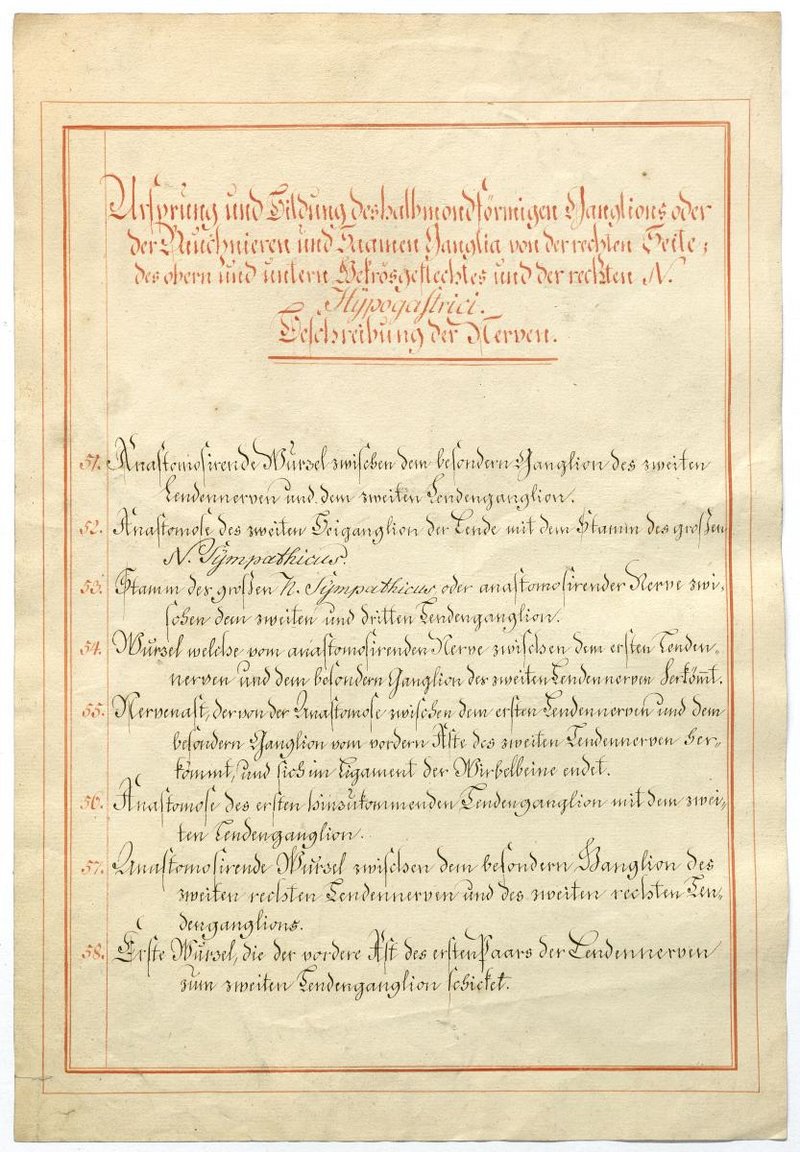 Ursprung und Bildung des halbmondförmigen Ganglions oder
der Nüuchnieren und Saamen Ganglia von der rechten Seite;
des obern und untern Gekrösgeflechtes und der rechten N.
Hÿpogastrici.
Beschreibung der Nerven.
51. Anastomosirende Wurzel zwischen dem besondern Ganglion des zweiten
Lendennerven und dem zweiten Lendenganglion.
52. Anastomose des zweiten Beiganglion der Lende mit dem Stamm des großen
N. Sÿmpathicus.
53. Stamm des großen N. Sÿmpathicus, oder anastomosirender Nerve zwi-
schen dem zweiten und dritten Lendenganglion.
54. Wurzel welche vom anastomosirenden Nerve zwischen dem ersten Lenden-
nerven und dem besondern Ganglion der zweiten Lendennerven herköm̄t.
55. Nervenast, der von der Anastomose zwischen dem ersten Lendennerven und dem
besondern Ganglion vom vordern Aste des zweiten Lendennerven her-
kömmt, und sich im Ligament der Wirbelbeine endet.
56. Anastomose des ersten hinzukommenden Lendenganglion mit dem zwei-
ten Lendenganglion.
57. Anastomosirende Wurzel zwischen dem besondern Ganglion des
zweiten rechten Lendennerven und des zweiten rechten Len-
denganglions.
58. Erste Wurzel, die der vordere Ast des ersten Paars der Lendennerven
zum zweiten Lendenganglion schicket.